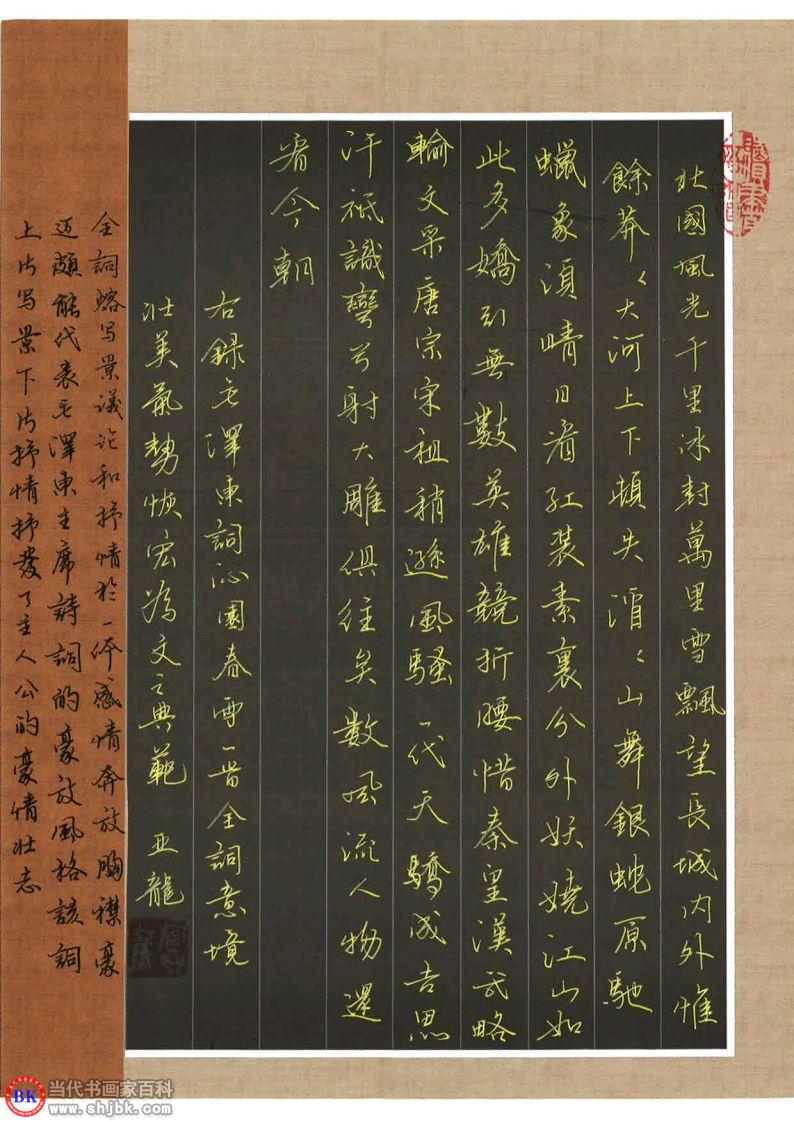 北國風光千里冰封萬里雪飄望長城内外惟
餘莽〻大河上下頓失滔〻山舞銀蛇原馳
蠟象須晴日看红装素裹分外妖娆江山如
此多嬌引無數英雄競折腰惜秦皇漢武略
輸文采唐宗宋祖稍遜風騷一代天驕成吉思
汗祗識彎弓射大雕俱往矣數风流人物還
看今朝
右錄毛澤東詞沁園春雪一首全詞意境
壮美氣勢恢宏為文之典範 亚龍
全詞熔写景议论和抒情於一体感情奔放胸襟豪
迈颇能代表毛澤東主席詩詞的豪放風格該詞
上片写景下片抒情抒发了主人公的豪情壮志
BK 当代书画家百科
www.shjbk.com